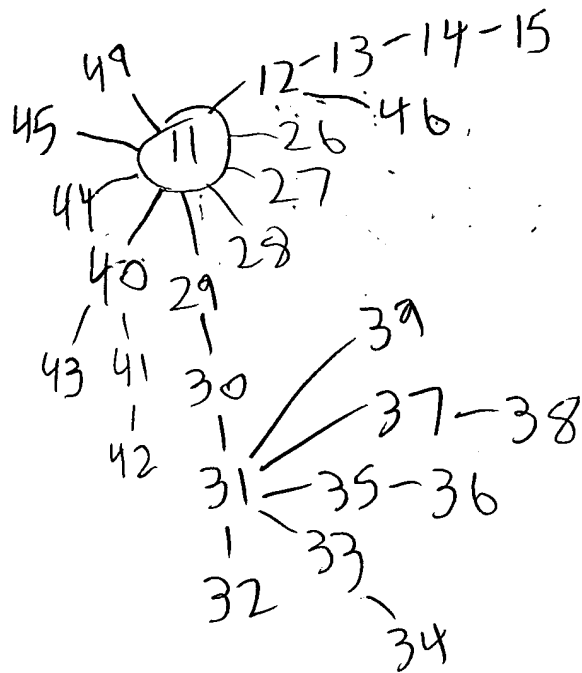 49
12-13-14-15
45
11
46
26
44
27
28
40
29
43
41
30
39
42
37-38
31
35-36
33
32
34